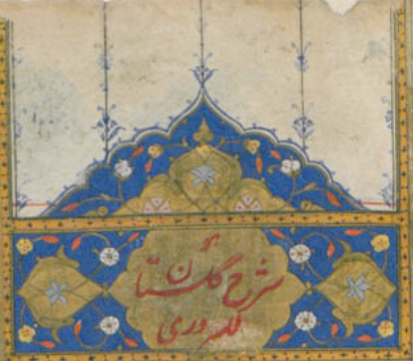 هو
شرح گلستان
للسروری